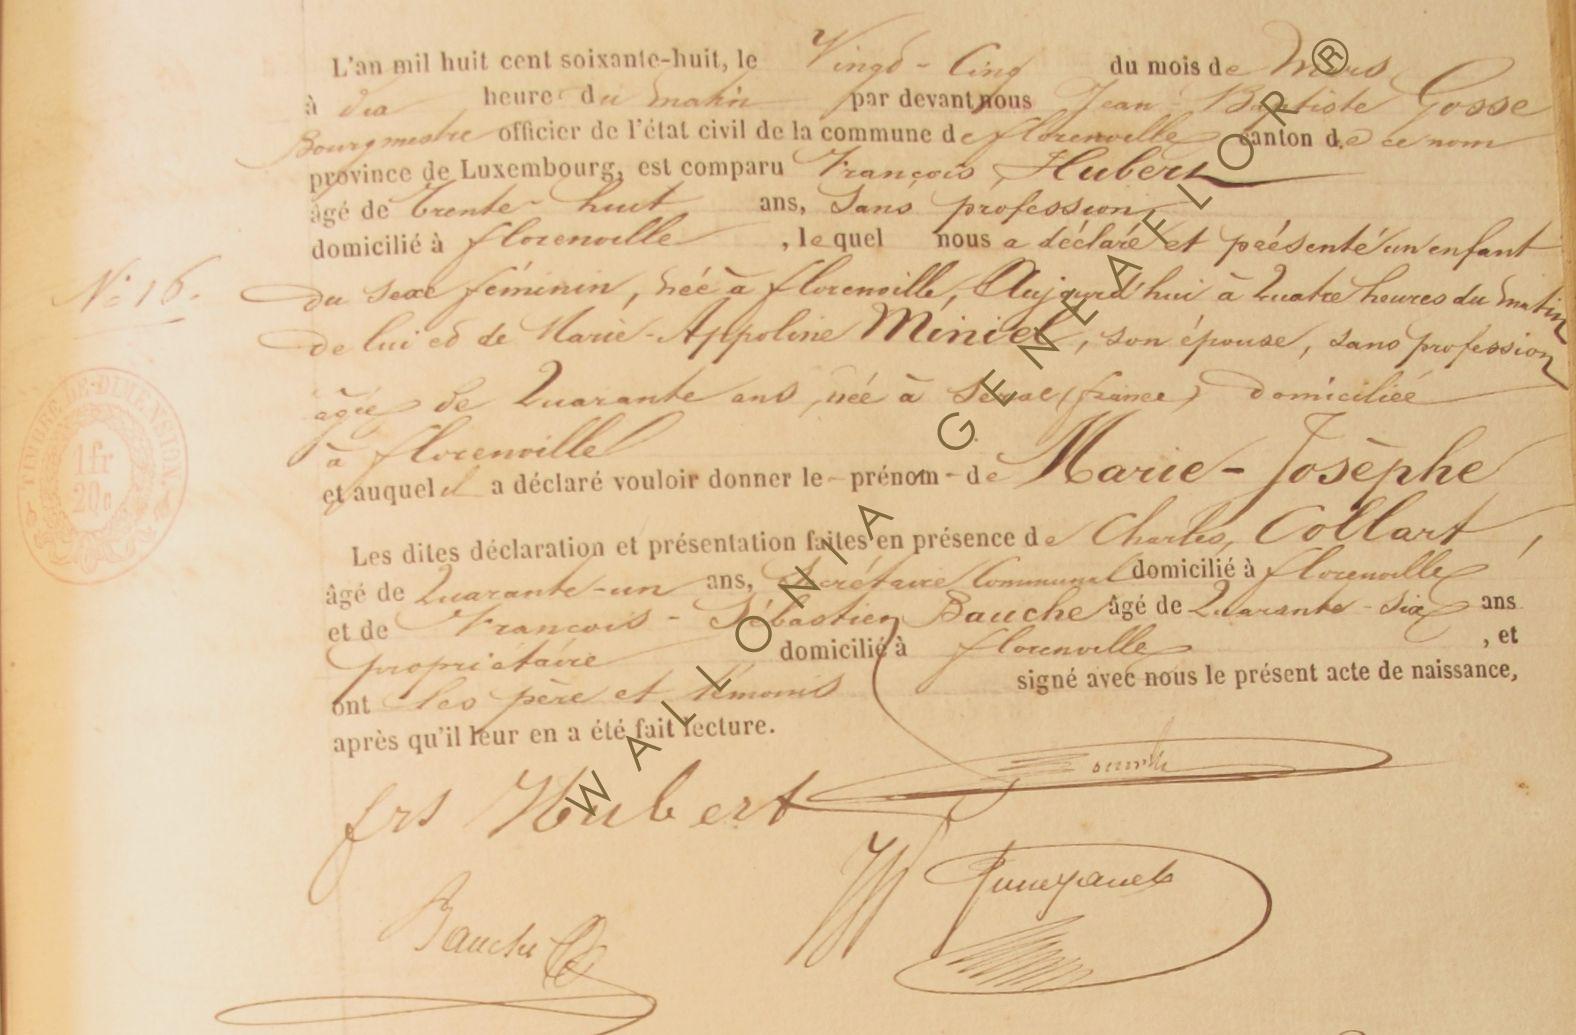 L'an mil huit cent soixante-huit, le Vingt-Cinq du mois de Mars
à dix heure du matin par devant nous Jean-Baptiste Gosse
Bourgmestre officier de l'état civil de la commune de florenville canton de ce nom
province de Luxembourg, est comparu François, Hubert
âgé de Trente-huit ans, Sans profession
domicilié à florenville, lequel nous a déclaré et présenté un enfant
N° 16.
du sexe féminin, née à florenville, Aujourd'hui à Quatre heures du matin
de lui et de Marie-Appoline Miniel, son épouse, sans profession
âgée de Quarante ans, née à (france) domiciliée
à florenville
et auquel il a déclaré vouloir donner le prénom de Marie-Josèphe
TIMBRE DE DIMENSION
1fr
20c
Les dites déclaration et présentation faites en présence de Charles, Collart,
âgé de Quarante-un ans, Secrétaire Communal domicilié à florenville
et de François-Sébastien Bauche âgé de Quarante-six ans
propriétaire domicilié à florenville, et
ont les père et témoins signé avec nous le présent acte de naissance,
après qu'il leur en a été fait lecture.
frs Hubert
Bauche
WALLONIA GENEAFLOR ®